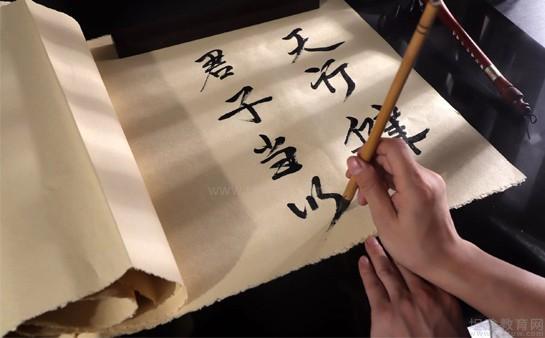 天行健
君子当以
教育网